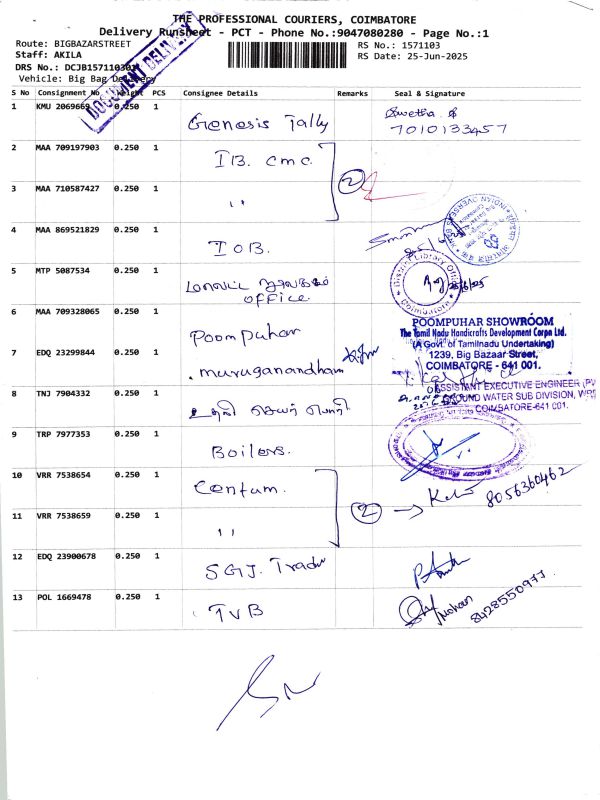 THE PROFESSIONAL COURIERS, COIMBATORE
Delivery Runsheet - PCT - Phone No.:9047080280 - Page No.:1
Route: BIGBAZARSTREET
Staff: AKILA
DRS No.: DCJB1571103
Vehicle: Big Bag Delivery
RS No.: 1571103
RS Date: 25-Jun-2025
DOCUMENT DELIVERY
S No Consignment No Weight PCS Consignee Details Remarks Seal & Signature
1 KMU 2069669 0.250 1 Genesis Tally Swetha
7010133457
2 MAA 709197903 0.250 1 IB. cmc.
2
3 MAA 710587427 0.250 1 ''
4 MAA 869521829 0.250 1 IOB.
INDIAN OVERSEAS BANK
5 MTP 5087534 0.250 1 மாவட்ட நூலகம்
office
District Library Office
Coimbatore
25/6/25
6 MAA 709328065 0.250 1 Poompuhar
POOMPUHAR SHOWROOM
The Tamil Nadu Handicrafts Development Corpn Ltd.
(A Govt. of Tamilnadu Undertaking)
1239, Big Bazaar Street,
COIMBATORE - 641 001.
7 EDQ 23299844 0.250 1 Muruganandham
8 TNJ 7904332 0.250 1 உதவி செயற் பொறி
ASSISTANT EXECUTIVE ENGINEER
GROUND WATER SUB DIVISION,
COIMBATORE-641 001.
9 TRP 7977353 0.250 1 Boilers.
10 VRR 7538654 0.250 1 Centum.
2
8056360462
11 VRR 7538659 0.250 1 ''
12 EDQ 23900678 0.250 1 SGJ. Trader
13 POL 1669478 0.250 1 TVB
Mohan
8428550977